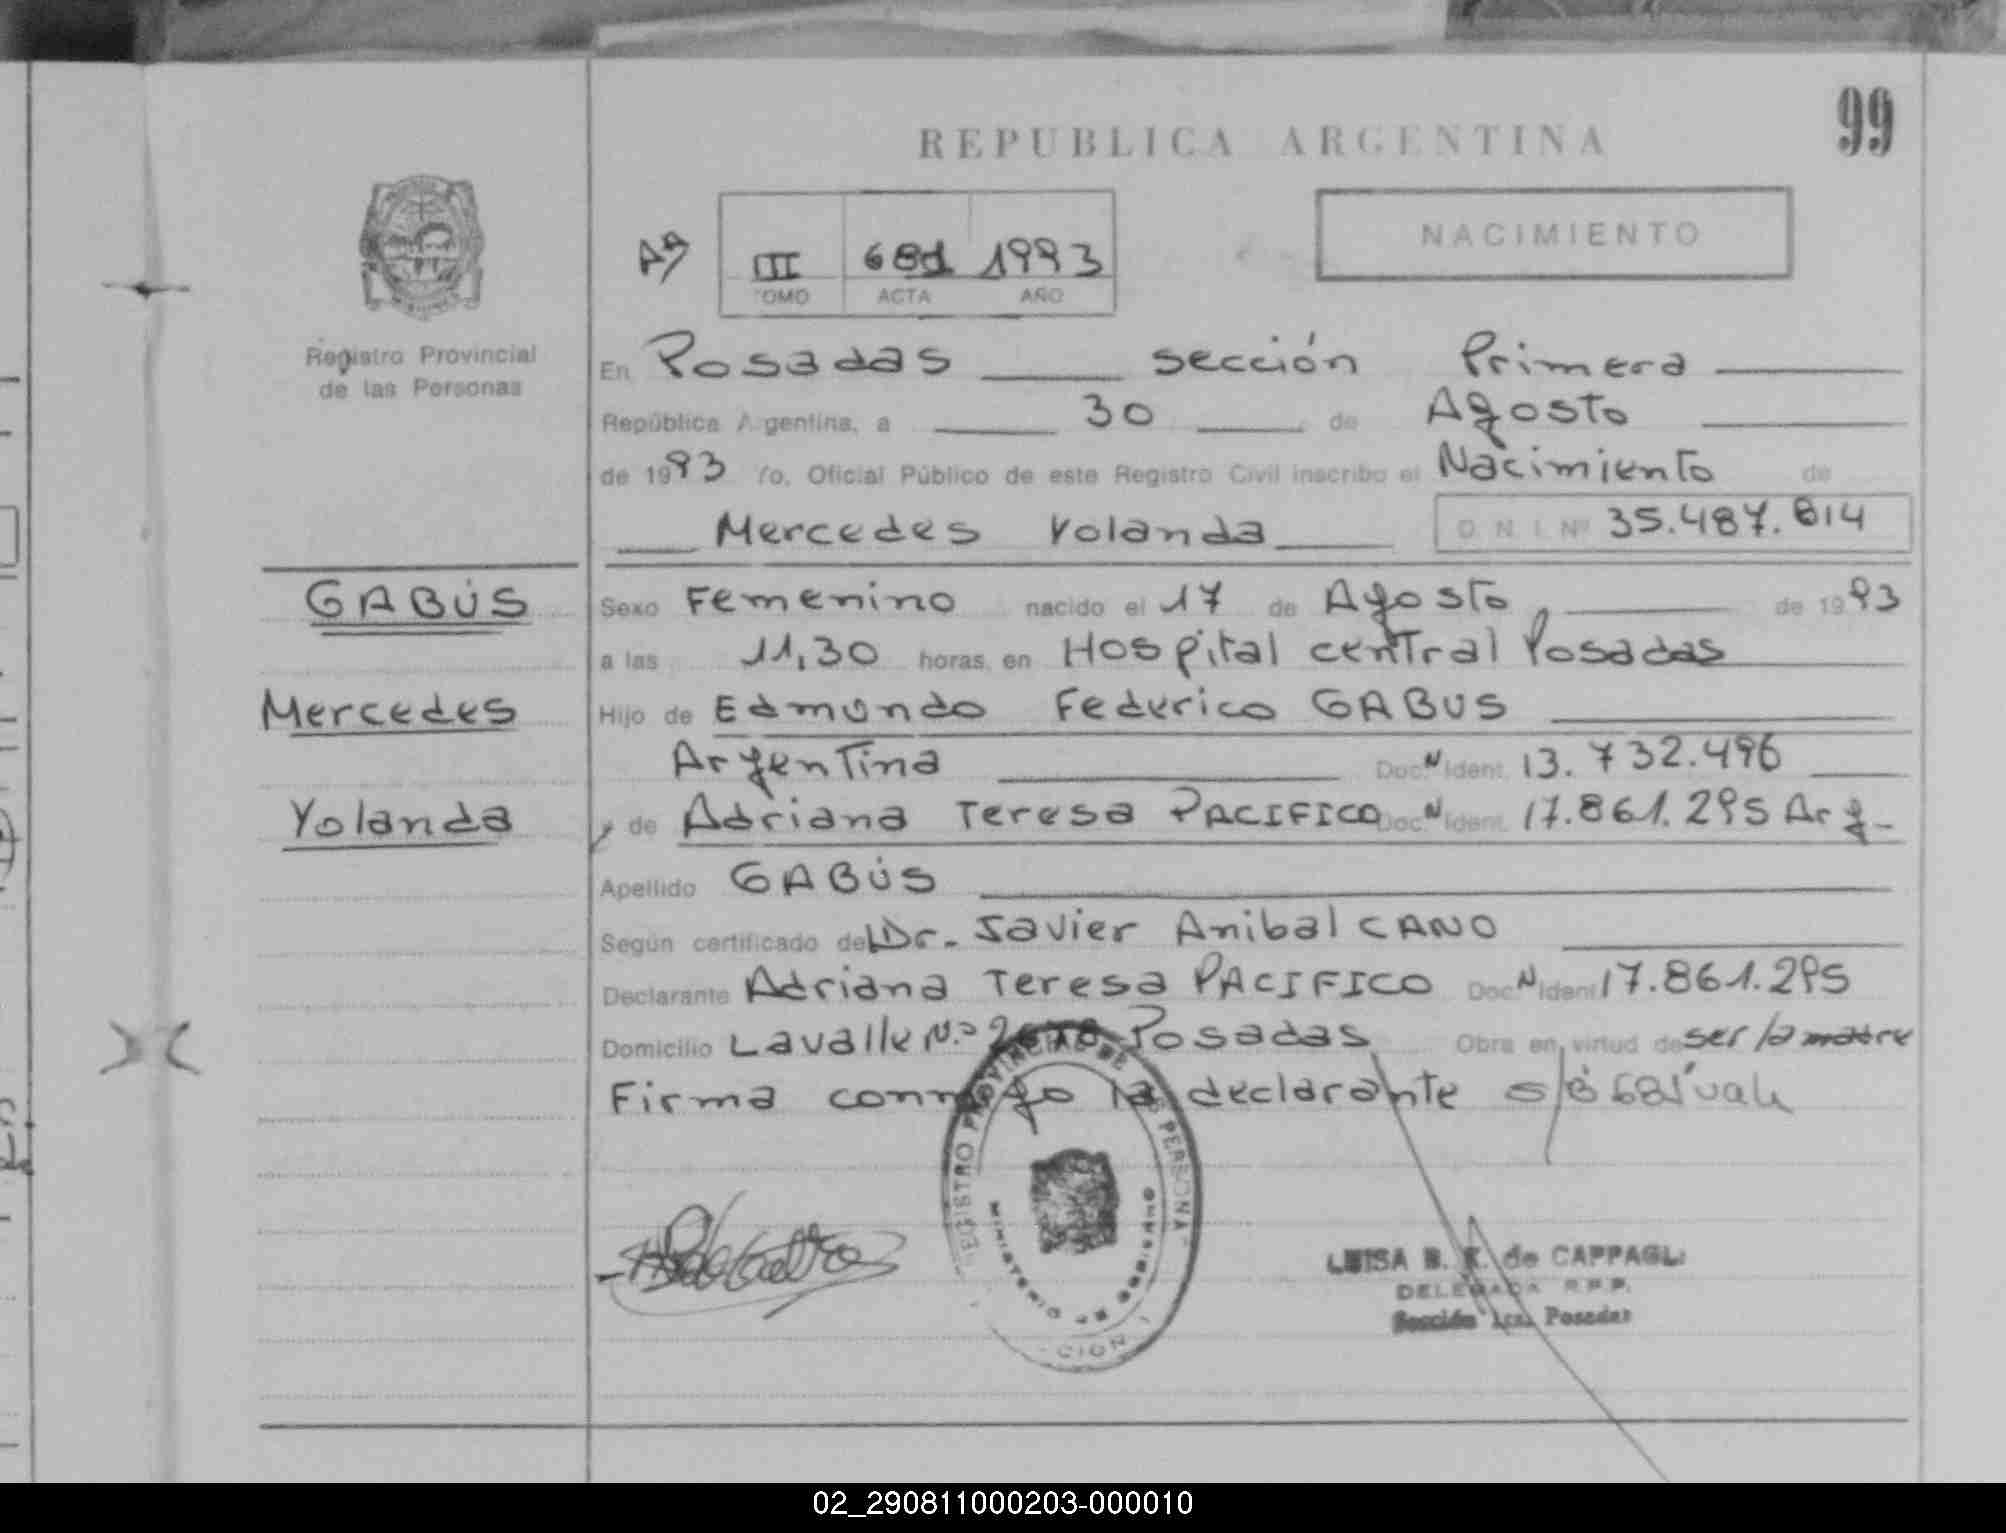 99
REPUBLICA ARGENTINA
NACIMIENTO
III 681 1993
TOMO ACTA AÑO
Registro Provincial
de las Personas
En Posadas sección Primera
República Argentina, a 30 de Agosto
de 1993 Yo, Oficial Público de este Registro Civil inscribo el Nacimiento de
Mercedes Yolanda D.N.I. Nº 35.487.814
GABÚS
Mercedes
Yolanda
Sexo Femenino nacido el 17 de Agosto de 1993
a las 11,30 horas, en Hospital central Posadas
Hijo de Edmundo Federico GABUS
Argentina Doc. N Ident. 13.732.496
y de Adriana Teresa PACIFICO Doc. N Ident. 17.861.295 Arg-
Apellido GABÚS
Según certificado del Dr. Javier Anibal CANO
Declarante Adriana Teresa PACIFICO Doc. N Ident. 17.861.295
Domicilio Lavalle N.º Posadas Obra en virtud de ser la madre
Firma conmigo la declarante
REGISTRO PROVINCIAL DE PERSONA
MINISTERIO DE GOBIERNO
LUISA B. K. de CAPPAGLI
DELEGADA R.P.P.
Sección 1ra. Posadas
02_290811000203-000010